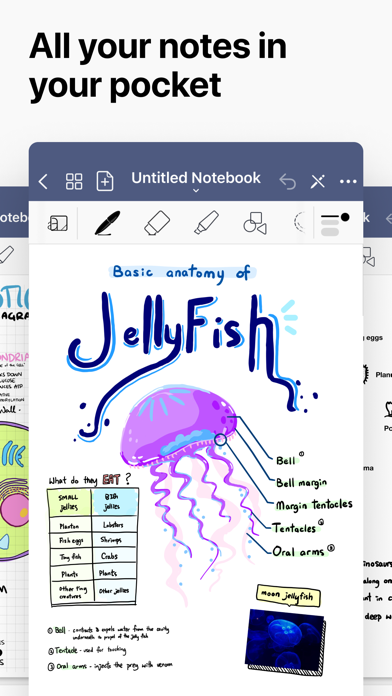 All your notes in
your pocket
Untitled Notebook
Basic anatomy of
JellyFish
Bell ①
Bell margin
Margin tentacles
Tentacles ②
Oral arms ③
What do they EAT ?
SMALL jellies
BIG jellies
Plankton
Lobsters
Fish eggs
Shrimps
Tiny fish
Crabs
Plants
Plants
Other tiny creatures
Other jellies
moon jellyfish
① Bell - contracts & expels water from the cavity
underneath to propel the jelly fish
② Tentacle - used for touching
③ Oral arms - injects the prey with venom
oteb
AGRA
NDRIA
Wall.
eggs
Plan
Po
ma
inosaurs
along on